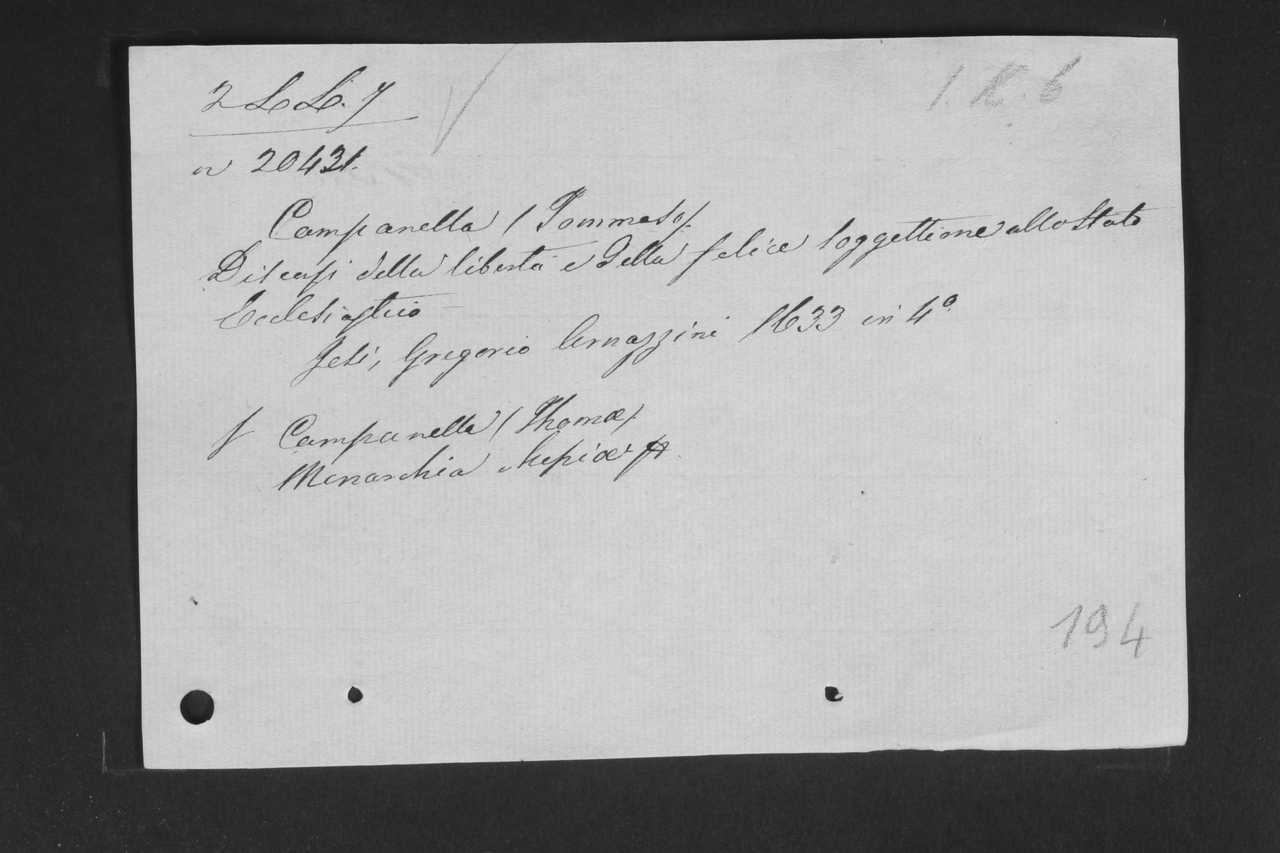 2 L L. 7
1. K. 6
n 20431.
Campanella (Tommaso)
Discorsi della libertà e della felice soggettione allo Stato
Ecclesiastico
Jesi, Gregorio Arnazzini 1633 in 4º
Campanella (Thomæ)
Monarchia Messiæ
194